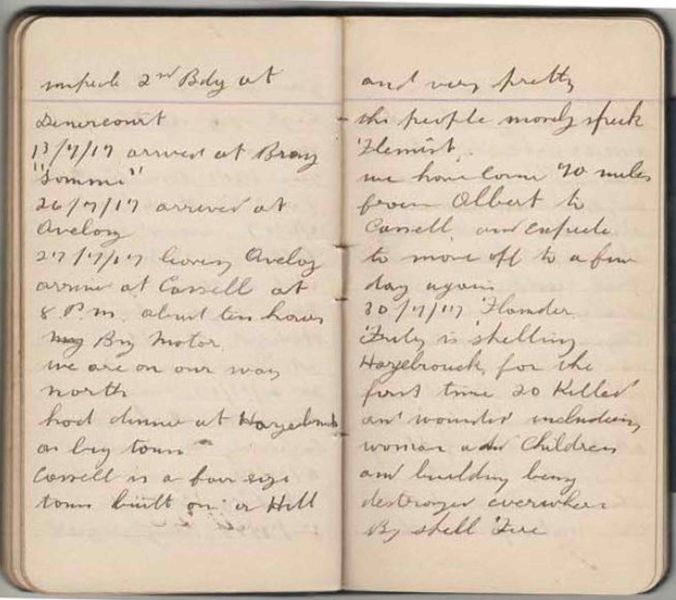 2nd Bdy at
Denercourt
13/7/17 arrived at Bray
"Somme"
26/7/17 arrived at
Aveloy
27/7/17 leaving Aveloy
arrive at Cassell at
8 P.m. about ten hours
By Motor
we are on our way
north
had dinner at Hazebrouck
a big town
Cassell is a fair size
town built on a Hill
and very pretty
the people mostly speek
Flemist.
we have come 70 miles
from Albert to
Cassell and expects
to move off to a few
day again
30/7/17 Flander
Frity is shelling
Hazebrouck for the
first time 20 Killed
and wounded including
woman and Children
and building being
destroyed everwhere
By shell Fire